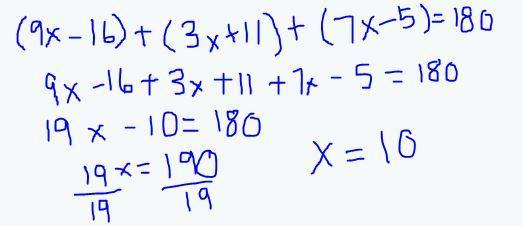 (9x-16)+(3x+11)+(7x-5)=180
9x-16+3x+11+7x-5=180
19x-10=180
19x=190
19 19
x=10